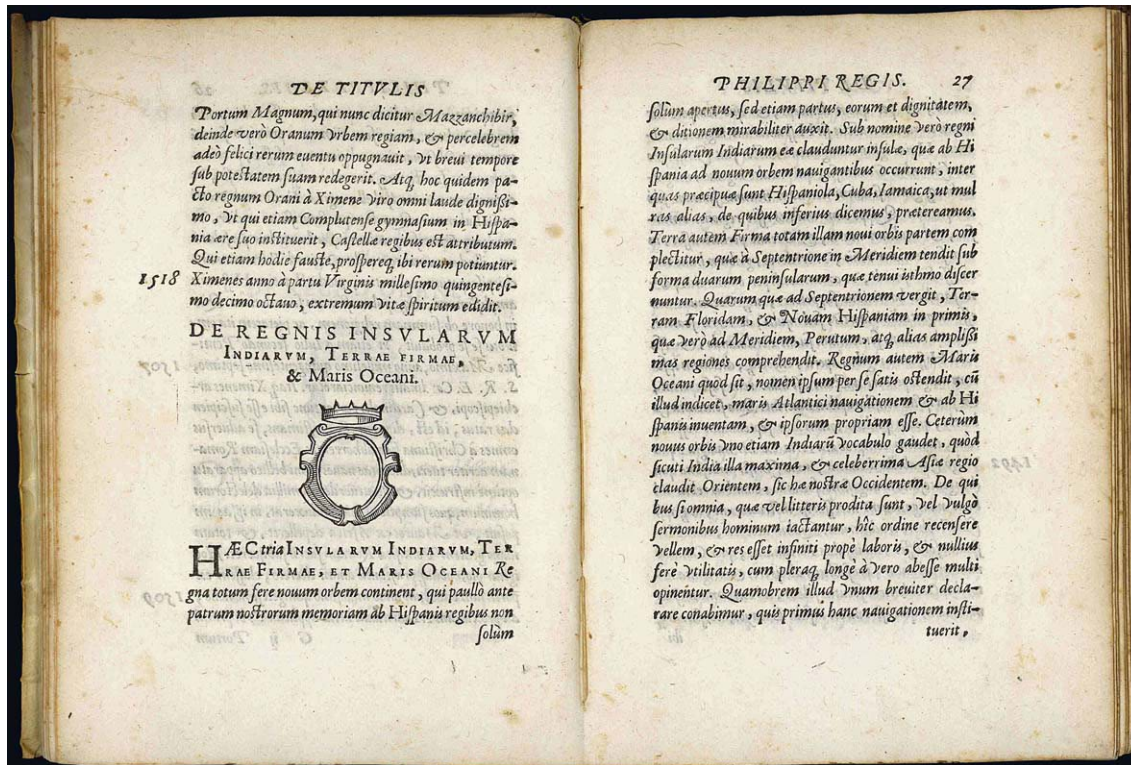 DE TITVLIS
Portum Magnum, qui nunc dicitur Mazzanchibir,
deinde verò Oranum vrbem regiam, & percelebrem
adeò felici rerum euentu oppugnauit, vt brevi tempore
sub potestatem suam redegerit. Atq, hoc quidem pa-
cto regnum Orani à Ximene viro omni laude dignißi-
mo, vt qui etiam Complutense gymnasium in Hispa-
nia ære suo instituerit, Castellæ regibus est attributum.
Qui etiam hodie fauste, prospereq, ibi rerum potiuntur.
1518 Ximenes anno à partu Virginis millesimo quingentesi-
mo decimo octauo, extremum vitæ spiritum edidit.
DE REGNIS INSVLARVM
INDIARVM, TERRAE FIRMAE,
& Maris Oceani.
HÆC tria INSVLARVM INDIARVM, TER
RAE FIRMAE, ET MARIS OCEANI Re
gna totum fere nouum orbem continent, qui paullò ante
patrum nostrorum memoriam ab Hispanis regibus non
solùm
PHILIPPI REGIS. 27
solùm apertus, sed etiam partus, eorum et dignitatem,
& ditionem mirabiliter auxit. Sub nomine verò regni
Insularum Indiarum eæ clauduntur insulæ, quæ ab Hi
spania ad nouum orbem nauigantibus occurrunt, inter
quas præcipuæ sunt Hispaniola, Cuba, Iamaica, ut mul
ras alias, de quibus inferius dicemus, prætereamus.
Terra autem Firma totam illam noui orbis partem com
plectitur, quæ à Septentrione in Meridiem tendit sub
forma duarum peninsularum, quæ tenui isthmo discer
nuntur. Quarum quæ ad Septentrionem vergit, Ter-
ram Floridam, & Nouam Hispaniam in primis,
quæ verò ad Meridiem, Perutum, atq, alias amplißi
mas regiones comprehendit. Regnum autem Maris
Oceani quòd sit, nomen ipsum per se satis ostendit, cũ
illud indicet, maris Atlantici nauigationem & ab Hi
spanis inuentam, & ipsorum propriam esse. Ceterùm
nouus orbis vno etiam Indiarũ vocabulo gaudet, quòd
sicuti India illa maxima, & celeberrima Asiæ regio
claudit Orientem, sic hæ nostræ Occidentem. De qui
bus si omnia, quæ vel litteris prodita sunt, vel vulgò
sermonibus hominum iactantur, hîc ordine recensere
vellem, & res esset infiniti propè laboris, & nullius
ferè vtilitatis, cum pleraq, longè à vero abesse multi
opinentur. Quamobrem illud vnum breuiter decla-
rare conabimur, quis primus hanc nauigationem insti-
tuerit,